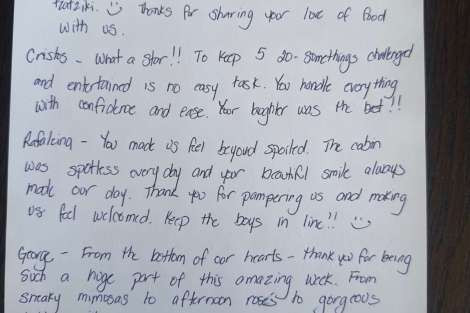 tzatziki. Thanks for sharing your love of food
with us.
Cristos - What a star!! To keep 5 20-somethings challenged
and entertained is no easy task. You handle everything
with confidence and ease. Your laughter was the best!!
You made us feel beyond spoiled. The cabin
was spotless every day and your beautiful smile always
made our day. Thank you for pampering us and making
us feel welcomed. Keep the boys in line!!
George - From the bottom of our hearts - thank you for being
such a huge part of this amazing week. From
sneaky mimosas to afternoon rosés to gorgeous